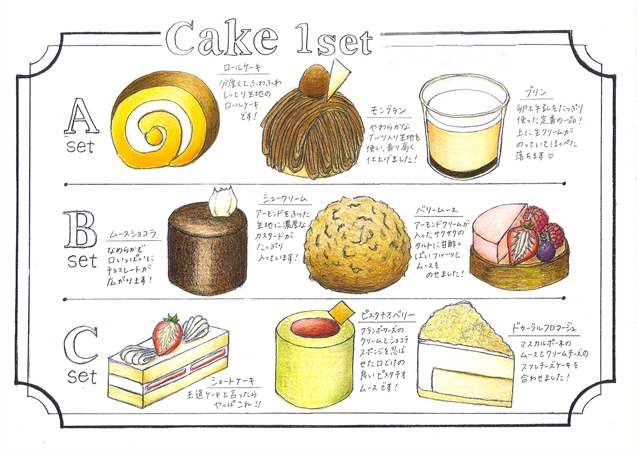 Cake 1set
A
set
ロールケーキ
分厚くてふわふわ
しっとり生地の
ロールケーキ
です!
モンブラン
やわらかな
ナッツ入り生地を
使い、香り高く
仕上げました!
プリン
卵と牛乳をたっぷり
使った定番の一品!
上に生クリームが
のっていてほっぺた
落ちます♡
B
set
ムースショコラ
なめらかで
口いっぱいに
チョコレートが
広がります!
シュークリーム
アーモンドをふった
生地に濃厚な
カスタードが
たっぷり
入ってます!
ベリームース
アーモンドクリームが
入ったサクサクの
タルトに甘酸っ
ぱいフルーツと
ムースを
のせました!
C
set
ショートケーキ
王道ケーキと言ったら
やっぱこれ!!
ピスタチオベリー
フランボワーズの
クリームとショコラ
スポンジを忍ば
せた口どけの
良いピスタチオ
ムースです!
ドゥーブルフロマージュ
マスカルポーネの
ムースとクリームチーズの
スフレチーズケーキを
合わせました!